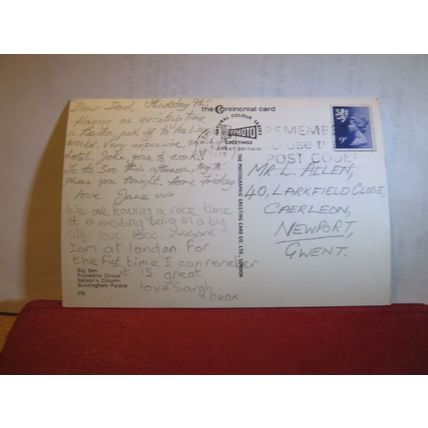 the Continental card
Dear Dad, Thursday 9th
Having an exciting time
in London, just off to the
Very expensive,
hotel. John gone to work
To the Zoo this afternoon, try to
phone you tonight. Home Friday
love Jane xx
We are having a nice time
It is exciting being in a big
city love
I am at london for
the first time I can remember
it is great
love Sarah
XOXOX
Big Ben
Piccadilly Circus
Nelson's Column
Buckingham Palace
NATURAL COLOUR SERIES
PHOTO
GREETINGS
GREAT BRITAIN
THE PHOTOGRAPHIC GREETING CARD CO. LTD., LONDON
REMEMBER
TO USE
POST CODE
9P
MR L. ALLEN,
40, LARKFIELD CLOSE,
CAERLEON,
NEWPORT,
GWENT.